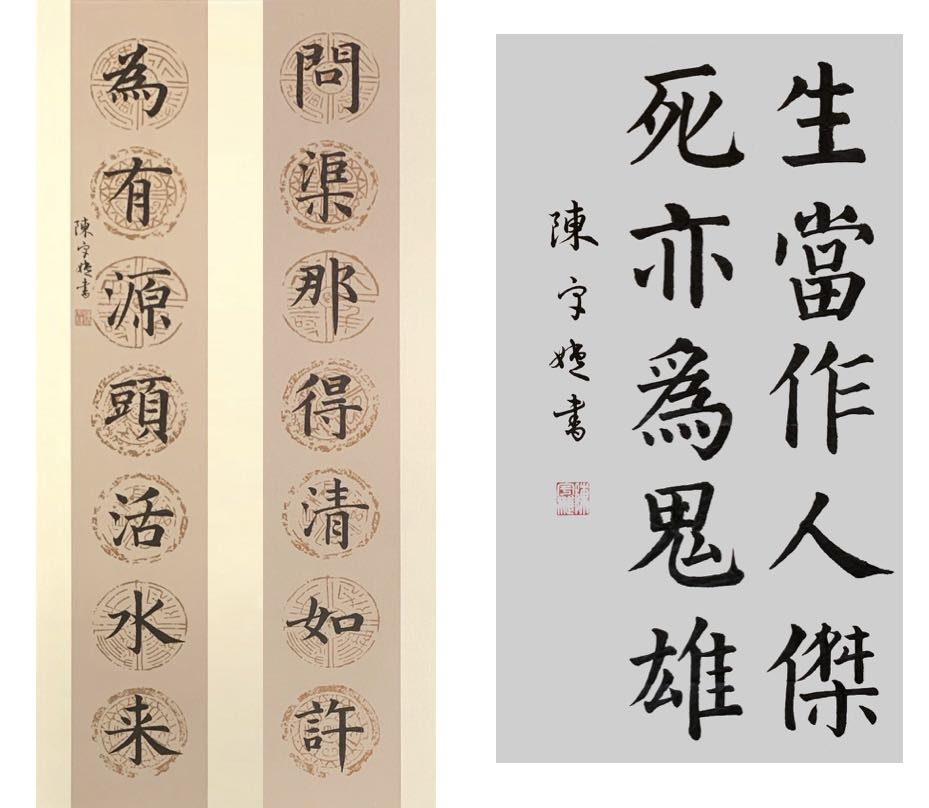 問渠那得清如許
為有源頭活水来
陳宇婕書
生當作人傑
死亦爲鬼雄
陳宇婕書